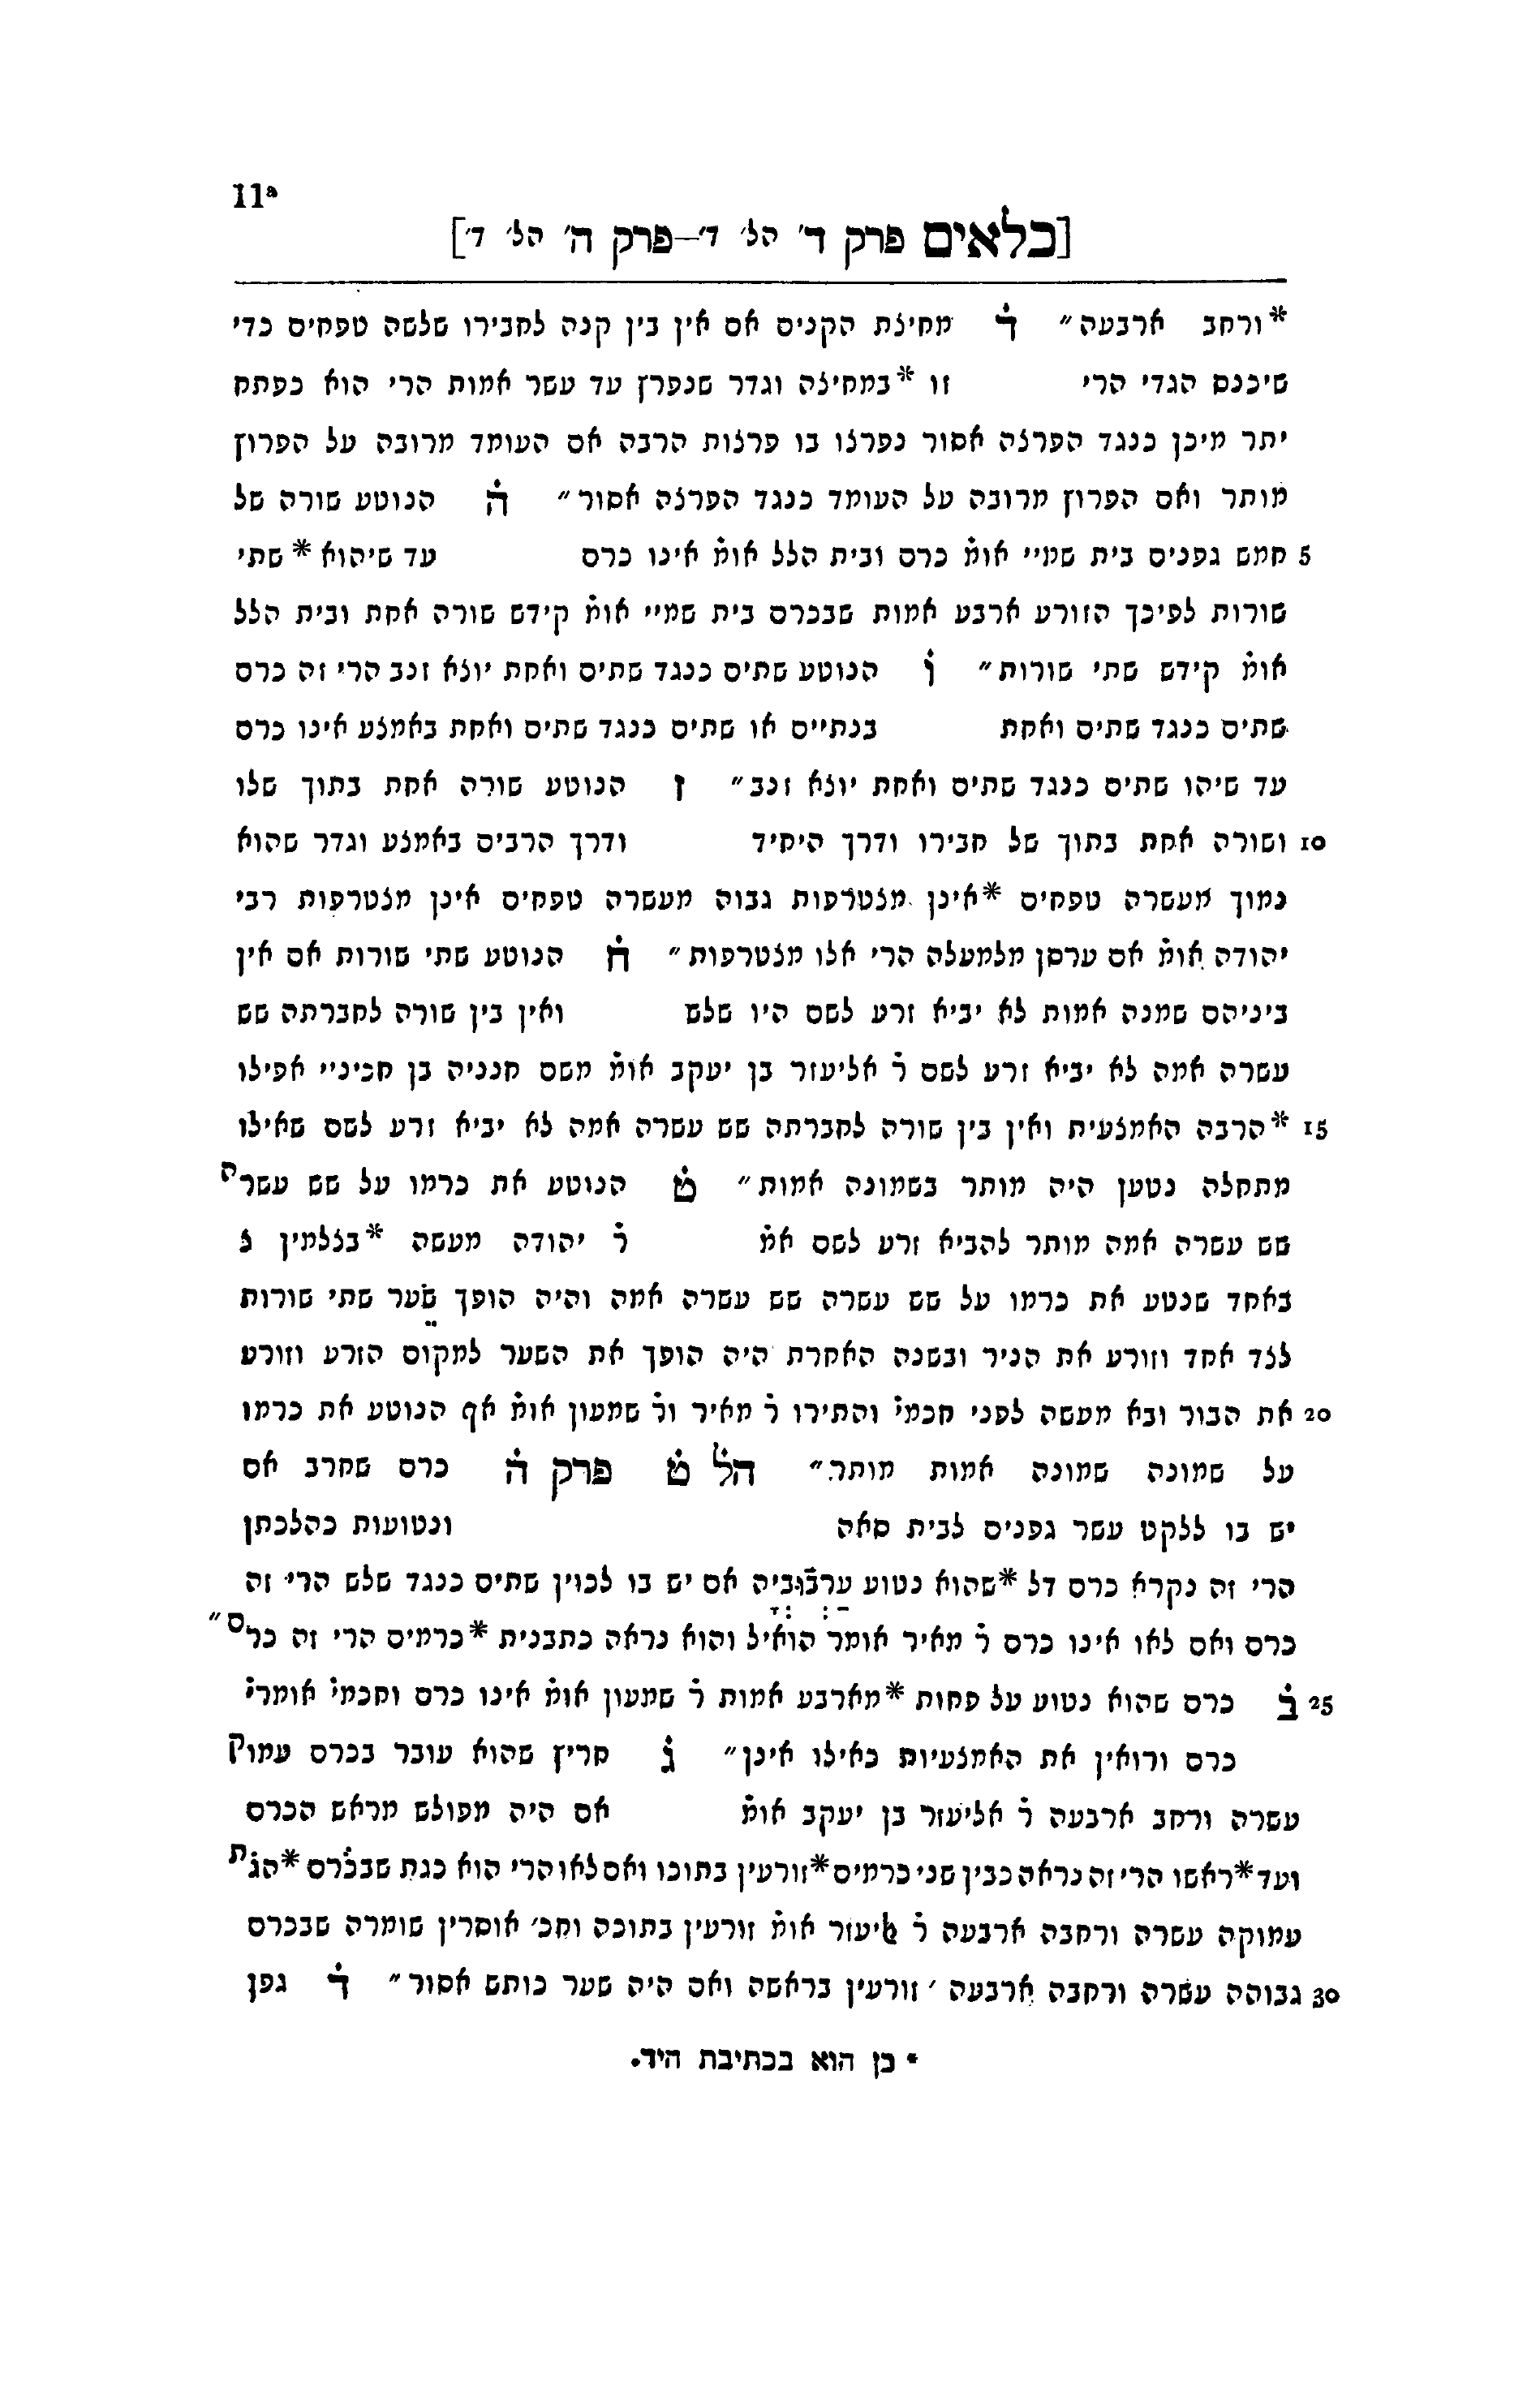 11ᵃ
[כלאים פרק ד' הל' ד'—פרק ה' הל' ד']
*ורחב ארבעה״ ד̇ מחיצת הקנים אם אין בין קנה לחבירו שלשה טפחים כדי
שיכנס הגדי הרי זו *במחיצה וגדר שנפרץ עד עשר אמות הרי הוא כפתח
יתר מיכן כנגד הפרצה אסור נפרצו בו פרצות הרבה אם העומד מרובה על הפרוץ
מותר ואם הפרוץ מרובה על העומד כנגד הפרצה אסור״ ה̇ הנוטע שורה של
5 חמש גפנים בית שמיי אומ̇ כרם ובית הלל אומ̇ אינו כרם עד שיהוא *שתי
שורות לפיכך הזורע ארבע אמות שבכרם בית שמיי אומ̇ קידש שורה אחת ובית הלל
אומ̇ קידש שתי שורות״ ו̇ הנוטע שתים כנגד שתים ואחת יוצא זנב הרי זה כרם
שתים כנגד שתים ואחת בנתיים או שתים כנגד שתים ואחת באמצע אינו כרם
עד שיהו שתים כנגד שתים ואחת יוצא זנב״ ז̇ הנוטע שורה אחת בתוך שלו
10 ושורה אחת בתוך של חבירו ודרך היחיד ודרך הרבים באמצע וגדר שהוא
נמוך מעשרה טפחים *אינן מצטרפות גבוה מעשרה טפחים אינן מצטרפות רבי
יהודה אומ̇ אם ערסן מלמעלה הרי אלו מצטרפות״ ח̇ הנוטע שתי שורות אם אין
ביניהם שמנה אמות לא יביא זרע לשם היו שלש ואין בין שורה לחברתה שש
עשרה אמה לא יביא זרע לשם ר̇ אליעזר בן יעקב אומ̇ משם חנניה בן חכיניי אפילו
15 *הרבה האמצעית ואין בין שורה לחברתה שש עשרה אמה לא יביא זרע לשם שאילו
מתחלה נטען היה מותר בשמונה אמות״ ט̇ הנוטע את כרמו על שש עשרה
שש עשרה אמה מותר להביא זרע לשם אמ̇ ר̇ יהודה מעשה *בצלמין צ
באחד שנטע את כרמו על שש עשרה שש עשרה אמה והיה הופך שׂער שתי שורות
לצד אחד וזורע את הניר ובשנה האחרת היה הופך את השער למקום הזרע וזורע
20 את הבור ובא מעשה לפני חכמי̇ והתירו ר̇ מאיר ור̇ שמעון אומ̇ אף הנוטע את כרמו
על שמונה שמונה אמות מותר״ הל̇ ט̇ פרק ה̇ כרם שחרב אם
יש בו ללקט עשר גפנים לבית סאה ונטועות כהלכתן
הרי זה נקרא כרם דל *שהוא נטוע עַרְבּוּבְיָה אם יש בו לכוין שתים כנגד שלש הרי זה
כרם ואם לאו אינו כרם ר̇ מאיר אומר הואיל והוא נראה כתבנית *כרמים הרי זה כרם״
25 ב̇ כרם שהוא נטוע על פחות *מארבע אמות ר̇ שמעון אומ̇ אינו כרם וחכמי̇ אומרי̇
כרם ורואין את האמצעיות כאילו אינן״ ג̇ חריץ שהוא עובר בכרם עמוק
עשרה ורחב ארבעה ר̇ אליעזר בן יעקב אומ̇ אם היה מפולש מראש הכרם
ועד*ראשו הרי זה נראה כבין שני כרמים*זורעין בתוכו ואם לאו הרי הוא כגת שבכרם *הגת
עמוקה עשרה ורחבה ארבעה ר̇ ליעזר אומ̇ זורעין בתוכה וחכ' אוסרין שומרה שבכרם
30 גבוהה עשרה ורחבה ארבעה ׳ זורעין בראשה ואם היה שער כותש אסור״ ד̇ גפן
* כן הוא בכתיבת היד.